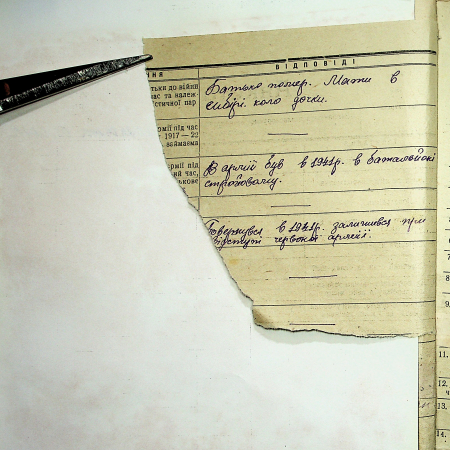 ння
ВІДПОВІДІ
тьки до війни
час та належ-
істичної пар
Батько помер. Мати в
сибірі коло дочки.
рмії під час
1917—22
займаема
рмії під
ий час,
ькове
В армії був в 1941р. в батальйоні
строй
Повернувся в 1941р. залишився при
відступі червоної армії.
11.
12.
13.
14.